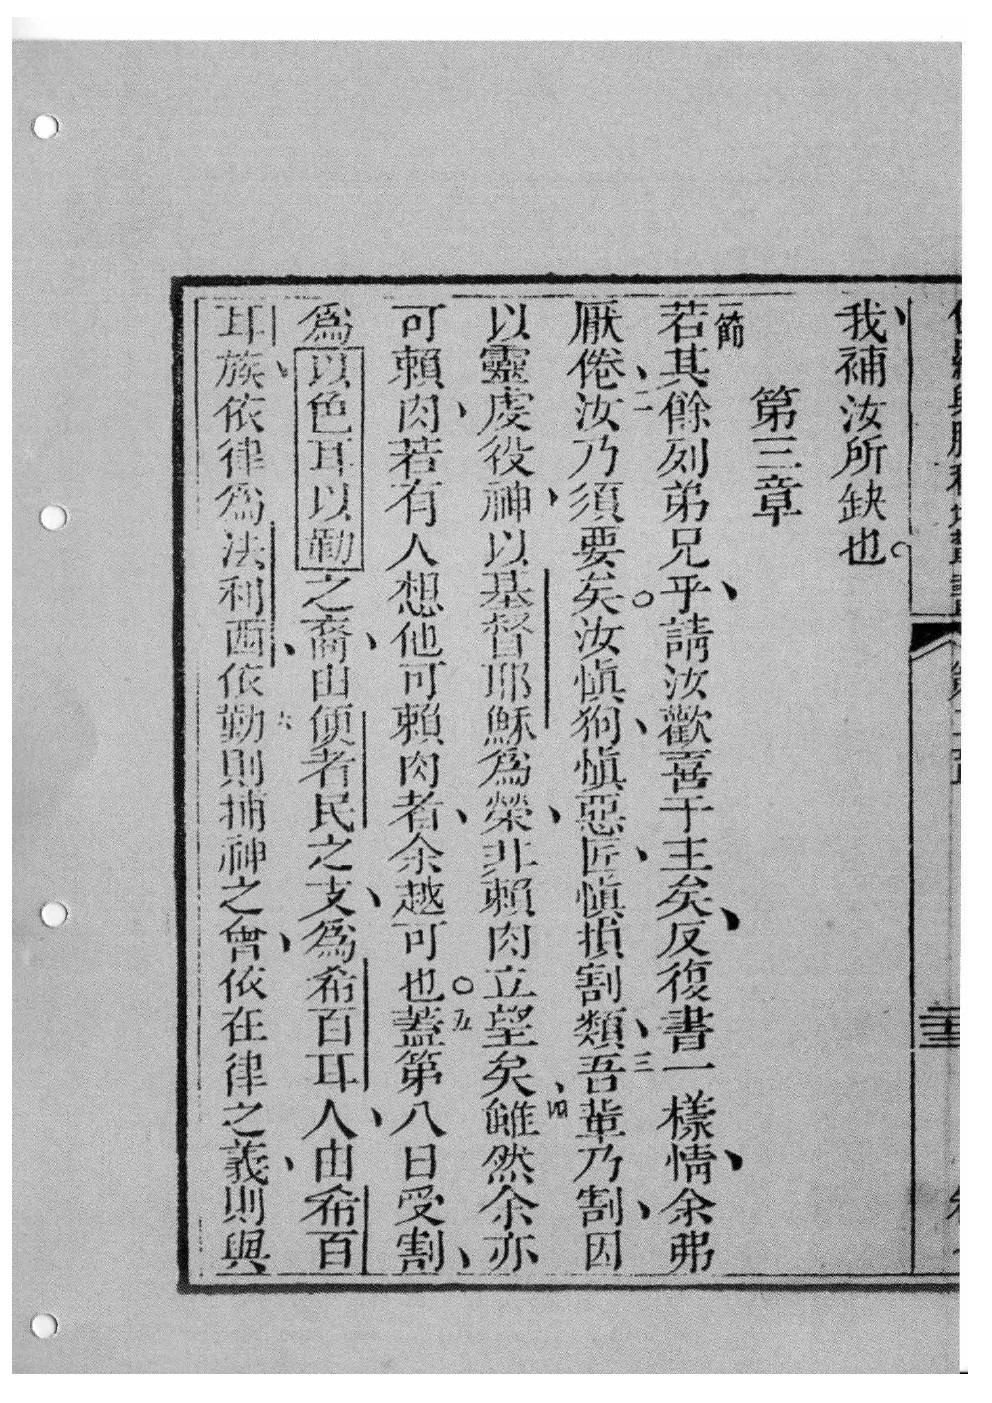 我補汝所缺也。
第三章
一節若其餘列弟兄乎、請汝歡喜于主矣、反復書一樣情、余弗
厭倦、二汝乃須要矣。汝慎狗、慎惡匠、慎損割類、三吾輩乃割、因
以靈虔役神、以基督耶穌為榮、非賴肉立望矣、四雖然余亦
可賴肉、若有人想他可賴肉者、余越可也。五蓋第八日受割、
爲以色耳以勒之裔、由便者民之支、爲希百耳人、由希百
耳族、依律爲法利西、六依勤則捕神之會、依在律之義、則與